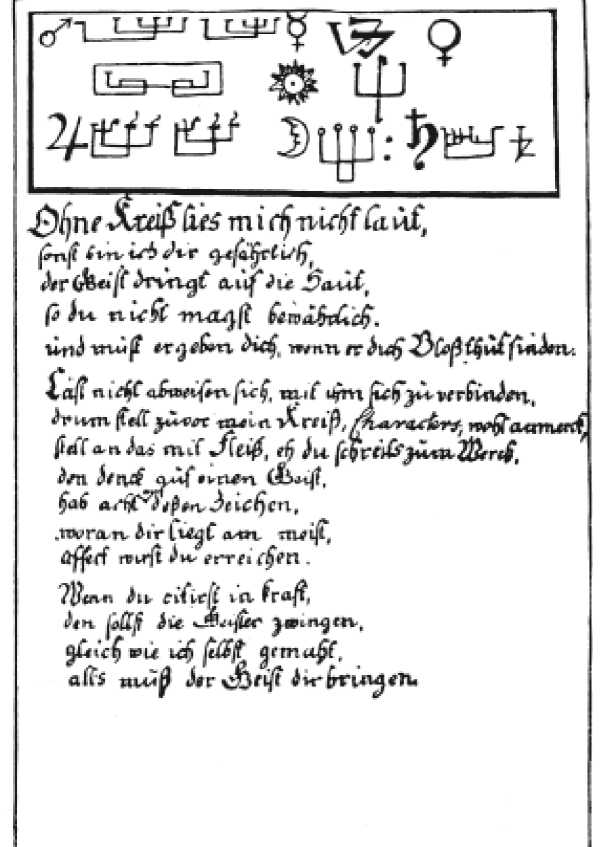 Ohne Kreiß lies mich nicht laut,
sonst bin ich dir gefährlich,
der Geist dringt auf die Haut,
so du nicht magst bewährlich.
und must ergeben dich, wenn er dich Bloß thut finden.
Läst nicht abweisen sich, mit ihm sich zu verbinden,
drum stell zuvor mein Kreiß, Characters, wohl anmerck,
stell an das mit Fleiß, eh du schreits zum Werck,
den denck auf einen Geist,
hab acht deßen Zeichen,
woran dir liegt am meist,
affect wirst du erreichen.
Wenn du citirst in kraft,
den sollst die Geister zwingen,
gleich wie ich selbst gemaht,
alls muß der Geist dir bringen.